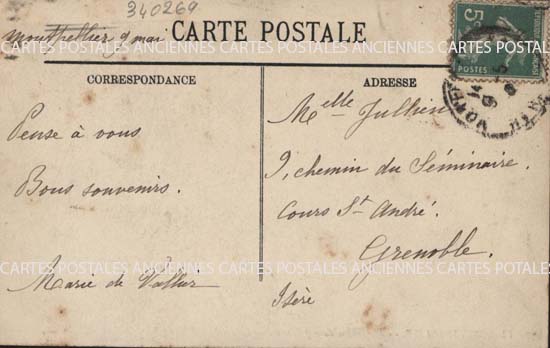 340269
CARTE POSTALE
Montpellier 9 mai
CARTES POSTALES ANCIENNES CARTES POSTALES ANCIENNES CARTES POTALES
CORRESPONDANCE
Pense à vous
Bons souvenirs.
Marie de
ADRESSE
Melle Jullien
9, chemin du Séminaire,
Cours St André.
Grenoble.
Isère
CARTES POSTALES ANCIENNES CARTES POSTALES ANCIENNES CARTES POTALES
5